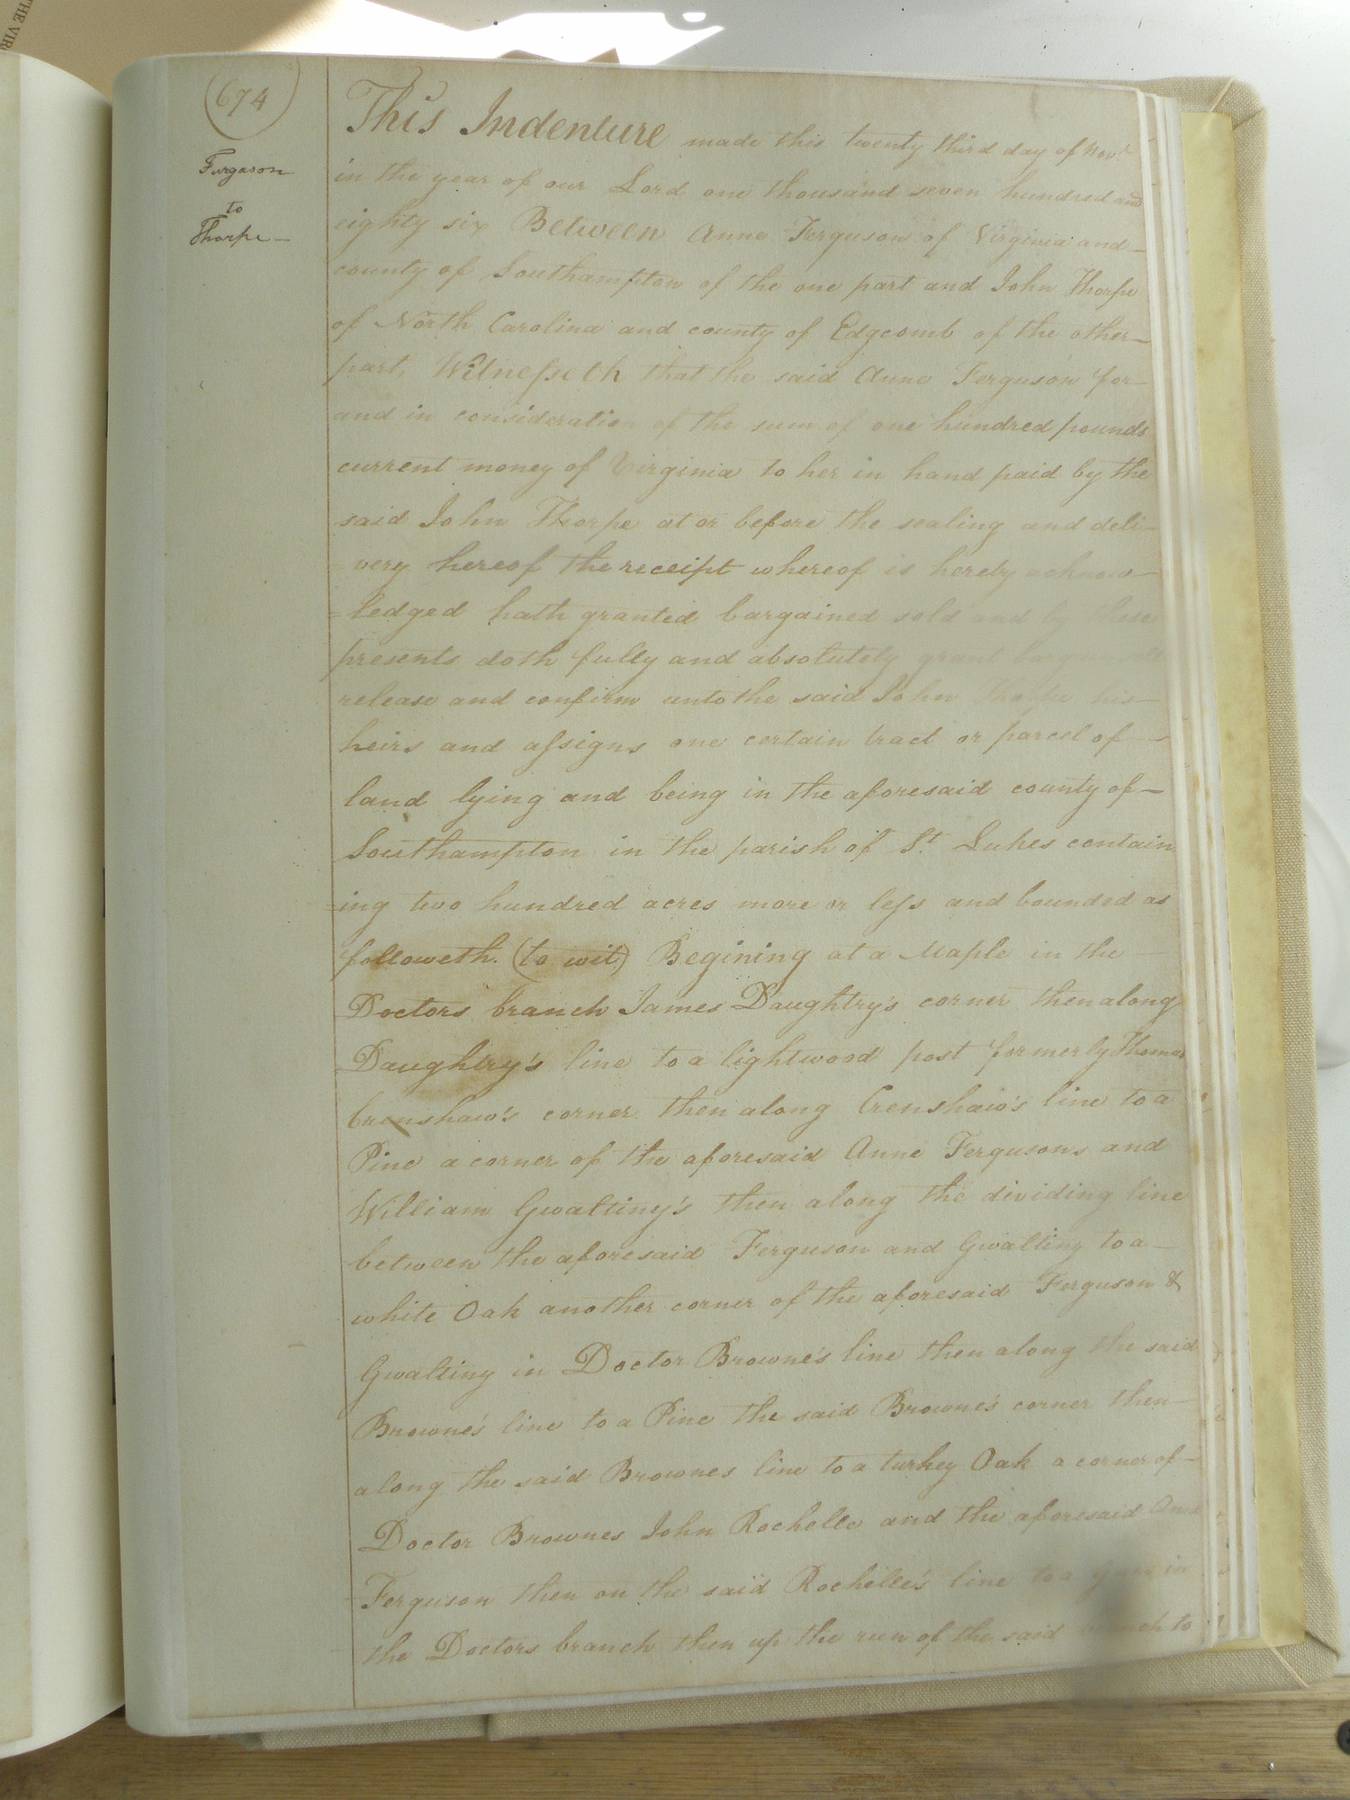 THE VIRG
674
Furgason
to
Thorpe
This Indenture made this twenty third day of Novr.
in the year of our Lord one thousand seven hundred and
eighty six Between Anne Ferguson of Virginia and
county of Southampton of the one part and John Thorpe
of North Carolina and county of Edgcomb of the other
part, Witnesseth that the said Anne Ferguson for
and in consideration of the sum of one hundred pounds
current money of Virginia to her in hand paid by the
said John Thorpe at or before the sealing and deli-
very hereof the receipt whereof is hereby acknow-
=ledged hath granted bargained sold and by these
presents doth fully and absolutely grant bargain sell
release and confirm unto the said John Thorpe his
heirs and assigns one certain tract or parcel of
land lying and being in the aforesaid county of
Southampton in the parish of St. Lukes contain
=ing two hundred acres more or less and bounded as
followeth. (to wit) Begining at a Maple in the
Doctors branch James Daughtry's corner then along
Daughtry's line to a lightwood post formerly Thomas
Crenshaw's corner then along Crenshaw's line to a
Pine a corner of the aforesaid Anne Fergusons and
William Gwaltiny's then along the dividing line
between the aforesaid Ferguson and Gwalting to a
white Oak another corner of the aforesaid Ferguson &
Gwalting in Doctor Browne's line then along the said
Browne's line to a Pine the said Browne's corner then
along the said Brownes line to a turkey Oak a corner of
Doctor Brownes John Rochelle and the aforesaid Anne
Ferguson then on the said Rochelle's line to a in
the Doctors branch then up the run of the said branch to